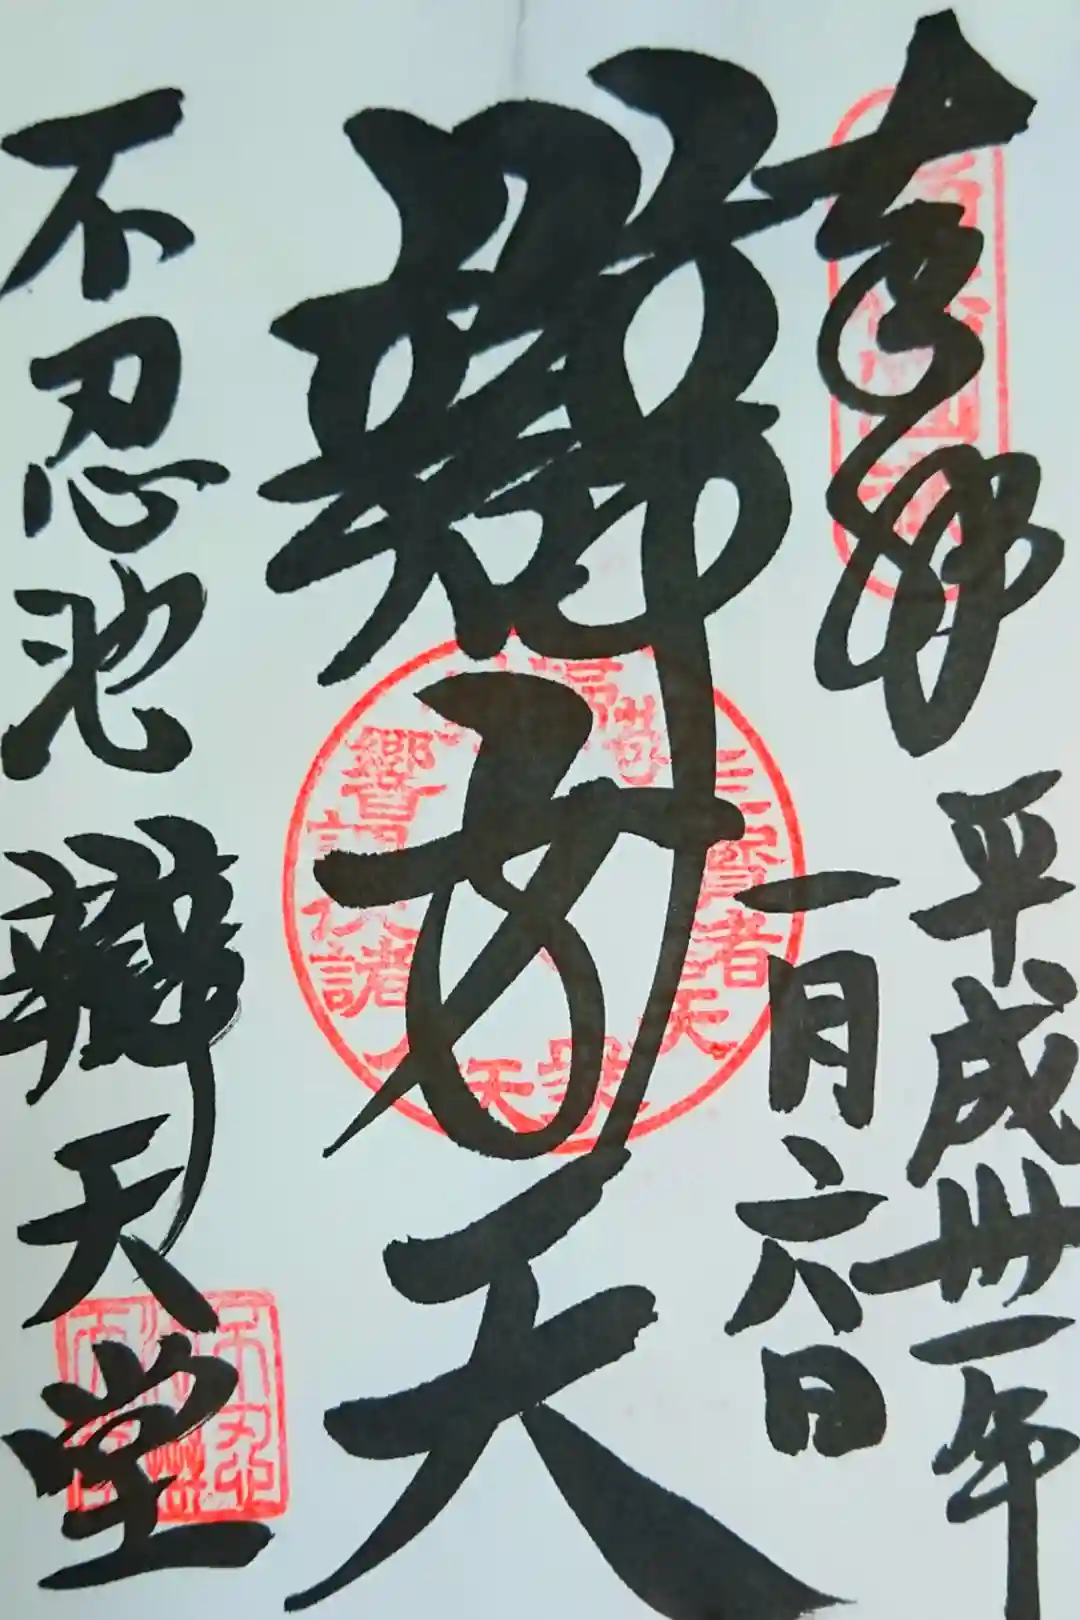 奉拝
平成卅一年
一月六日
辨才天
不忍池辨天堂